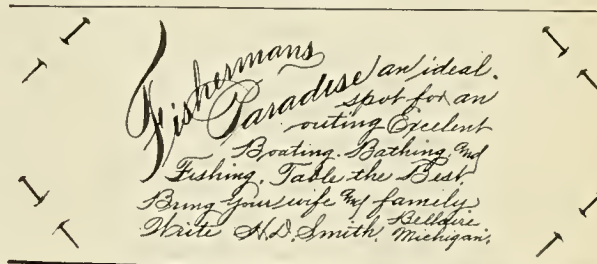 Fishermans
Paradise an ideal.
spot for an
outing Excelent
Boating. Bathing, and
Fishing. Table the Best.
Bring your wife and family
Write H.D. Smith. Bellaire
Michigan.